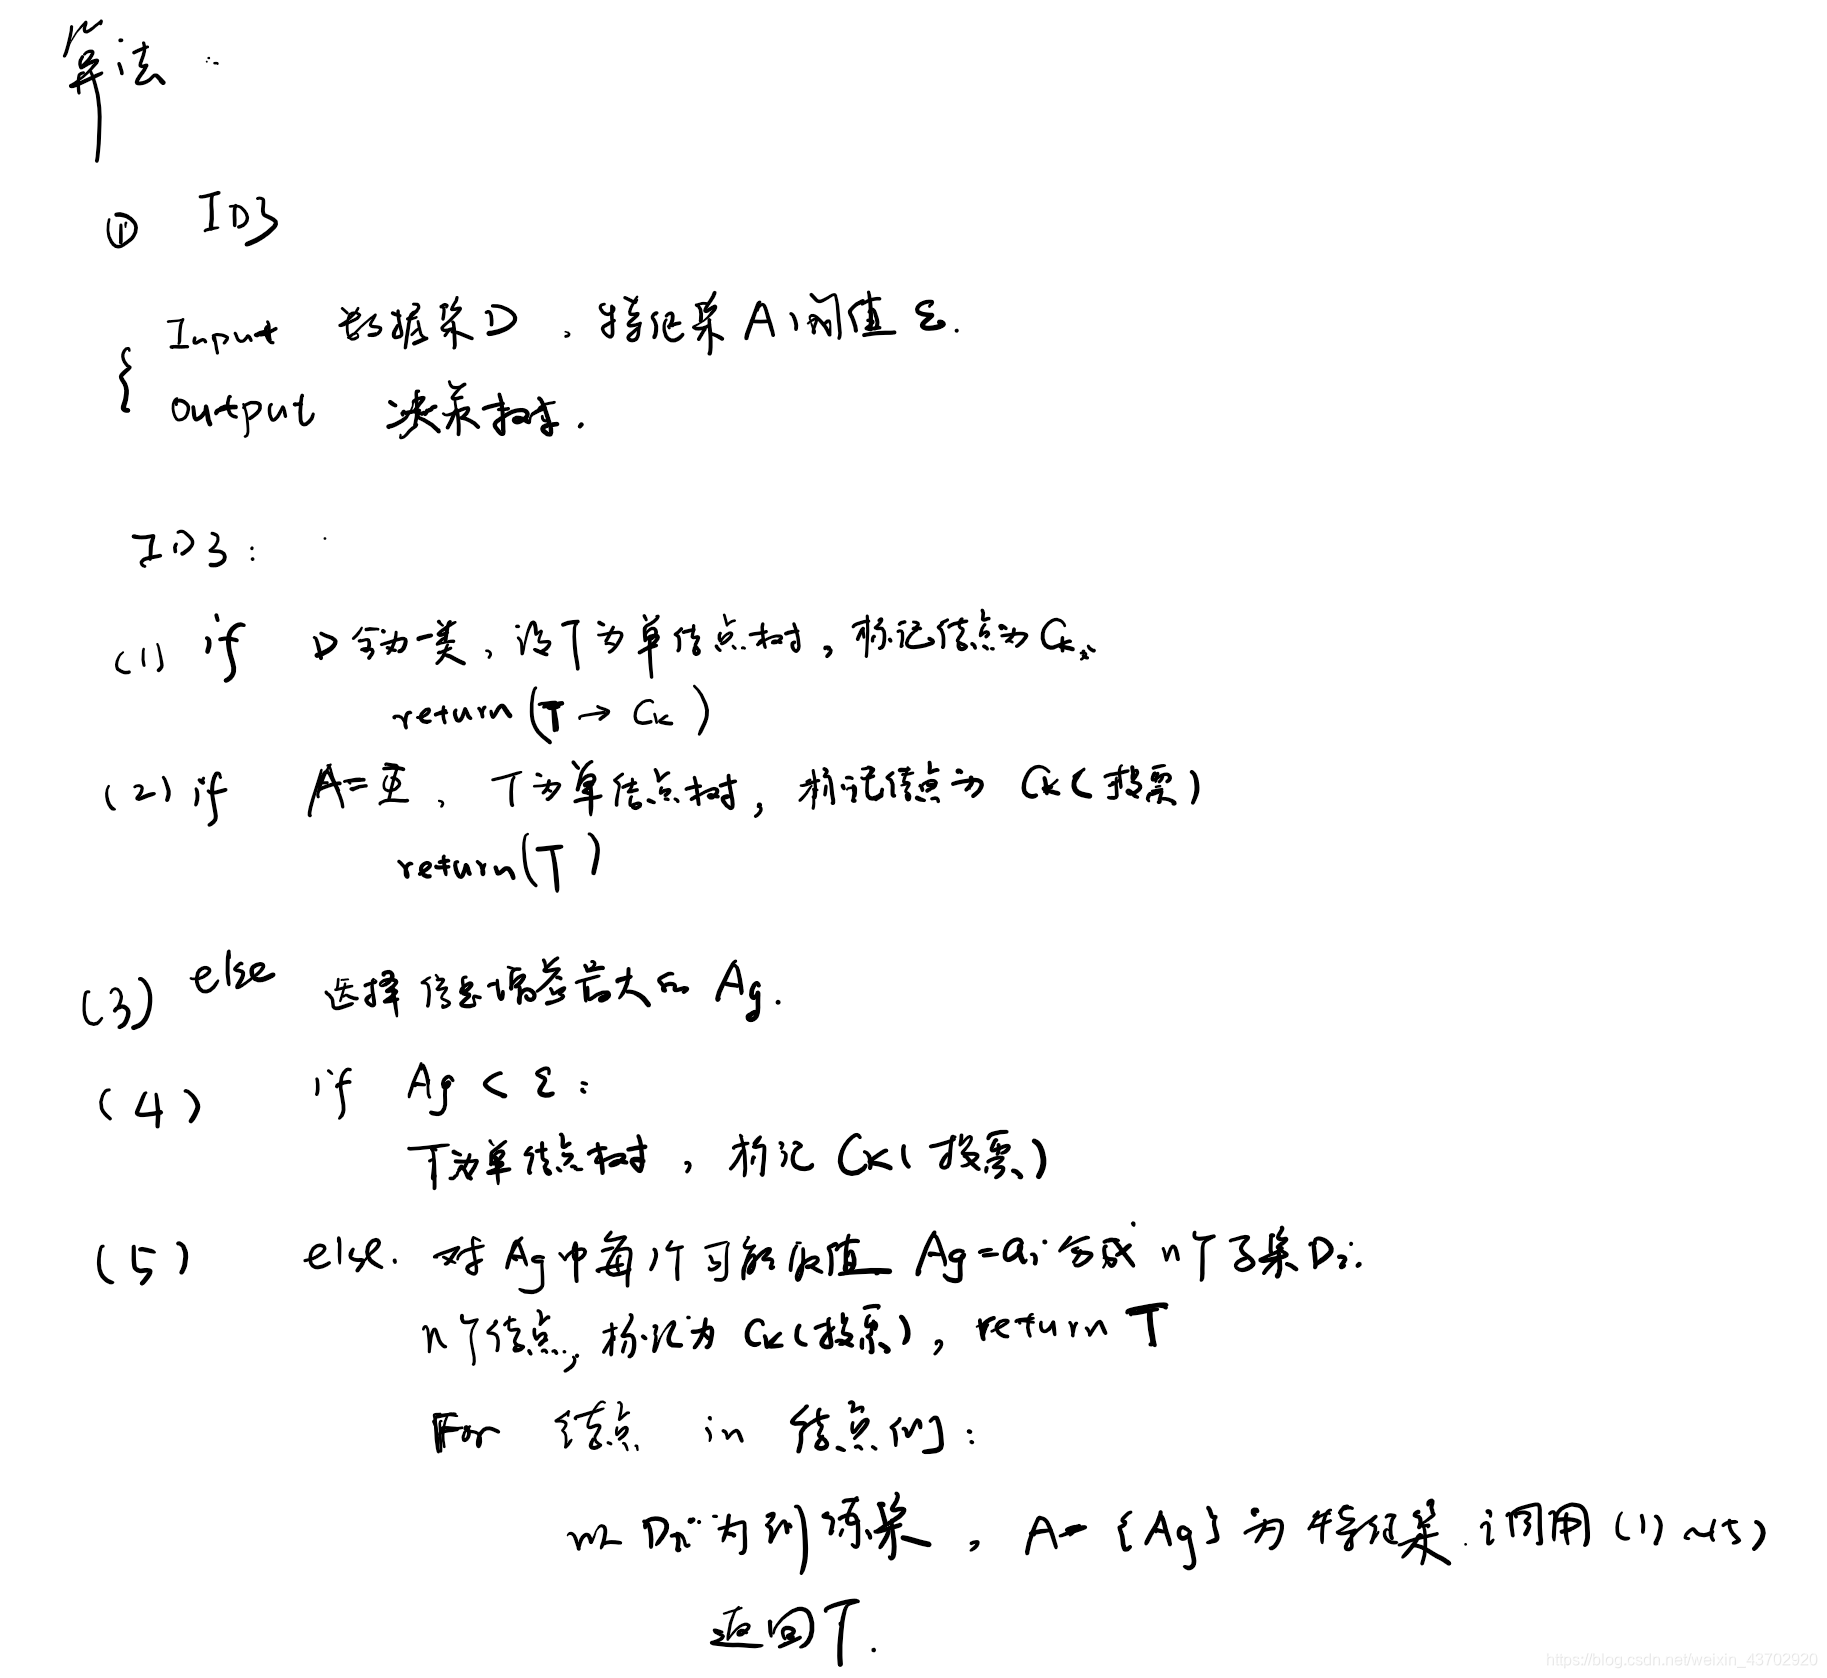 算法:
① ID3
Input 数据集D,特征集A,阈值ε.
{
output 决策树.
ID3:
(1) if D全为一类,设T为单结点树,标记结点为Ck.
return(T→Ck)
(2) if A=空,T为单结点树,标记结点为Ck(投票)
return(T)
(3) else 选择信息增益最大的Ag.
(4) if Ag<ε:
T为单结点树,标记Ck(投票)
(5) else. 对Ag中每个可能取值 Ag=ai分成n个子集Di.
n个结点,标记为Ck(投票),return T
For 结点 in 结点们:
以Di为训练集,A-{Ag}为特征集.调用(1)~(5)
返回T.
https://blog.csdn.net/weixin_43702920